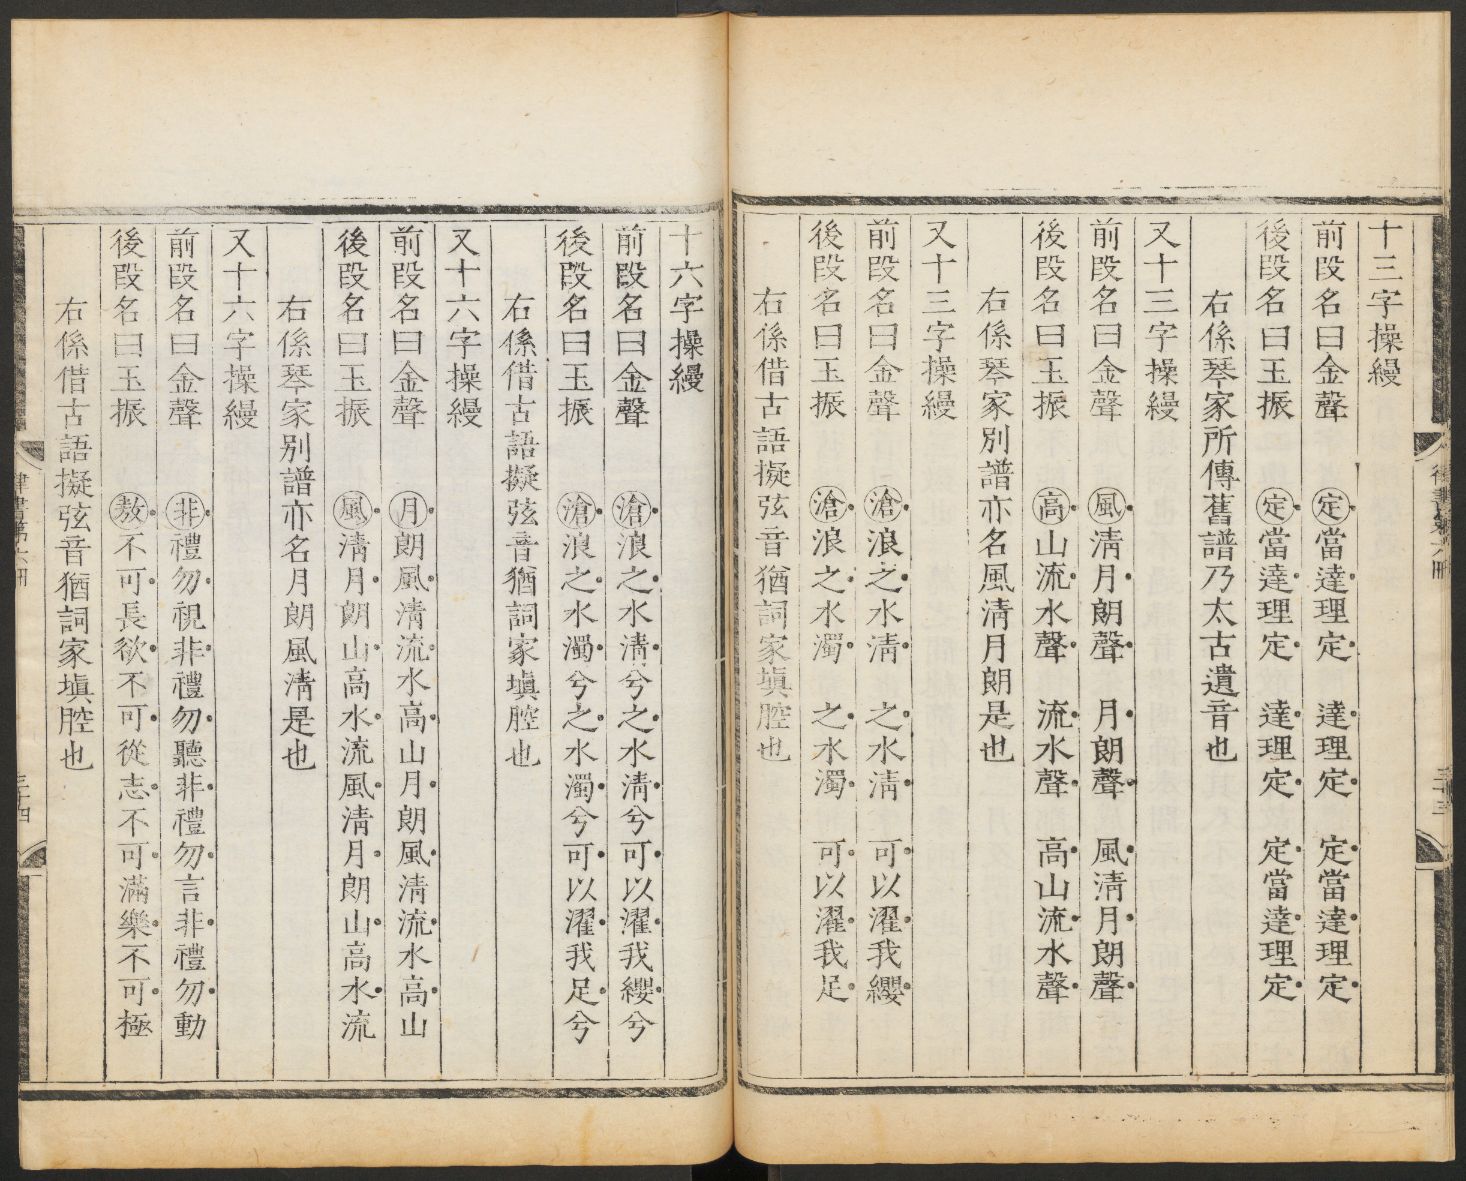 十三字操縵
前段名曰金聲　㝎當達理㝎　達理㝎　㝎當達理㝎
後段名曰玉振　㝎當達理㝎　達理㝎　㝎當達理㝎
右係琴家所傳舊譜乃太古遺音也
又十三字操縵
前段名曰金聲　風清月朗聲　月朗聲　風清月朗聲
後段名曰玉振　高山流水聲　流水聲　高山流水聲
右係琴家別譜亦名風清月朗是也
又十三字操縵
前段名曰金聲　滄浪之水清　之水清　可以濯我纓
後段名曰玉振　滄浪之水濁　之水濁　可以濯我足
右係借古語擬弦音猶詞家塡腔也
三十三
十六字操縵
前段名曰金聲　滄浪之水清兮之水清兮可以濯我纓兮
後段名曰玉振　滄浪之水濁兮之水濁兮可以濯我足兮
右係借古語擬弦音猶詞家塡腔也
又十六字操縵
前段名曰金聲　月朗風清流水高山月朗風清流水高山
後段名曰玉振　風清月朗山高水流風清月朗山高水流
右係琴家別譜亦名月朗風清是也
又十六字操縵
前段名曰金聲　非禮勿視非禮勿聽非禮勿言非禮勿動
後段名曰玉振　敖不可長欲不可從志不可滿樂不可極
右係借古語擬弦音猶詞家塡腔也
律書第六冊
三十四